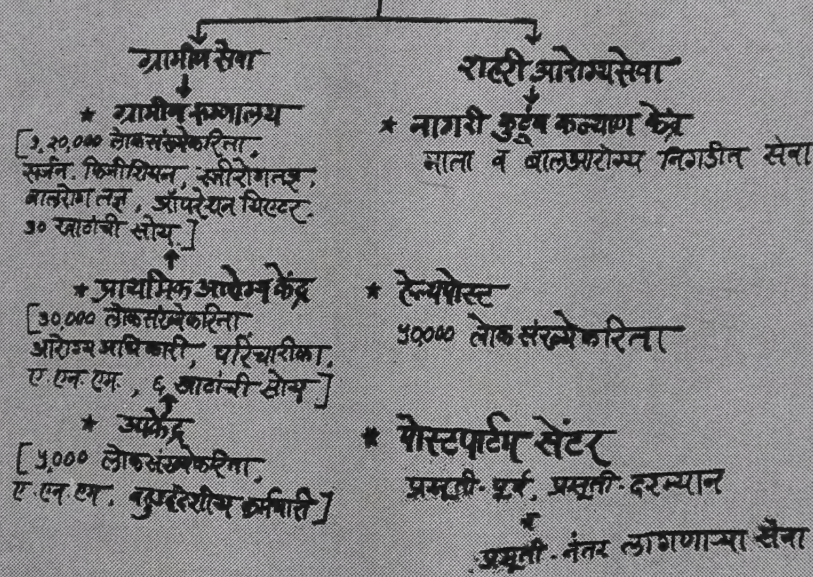 ग्रामीण सेवा
★ ग्रामीण रुग्णालय
[१,२०,००० लोकसंख्येकरिता,
सर्जन, फिजीशियन, स्त्रीरोगतज्ञ,
बालरोग तज्ञ, ऑपरेशन थिएटर.
३० खाटांची सोय.]
★ प्राथमिक आरोग्य केंद्र
[३०,००० लोकसंख्येकरिता
आरोग्य अधिकारी, परिचारीका,
ए.एन.एम., ६ खाटांची सोय]
★ उपकेंद्र
[५,००० लोकसंख्येकरिता,
ए.एन.एम, बहुउद्देशीय कर्मचारी]
शहरी आरोग्यसेवा
★ नागरी कुटुंब कल्याण केंद्र
माता व बालआरोग्य निगडीत सेवा
★ हेल्थपोस्ट
५०००० लोकसंख्येकरिता
★ पोस्टपार्टम सेंटर
प्रसूती-पूर्व, प्रसूती-दरम्यान
व
प्रसूती-नंतर लागणाऱ्या सेवा